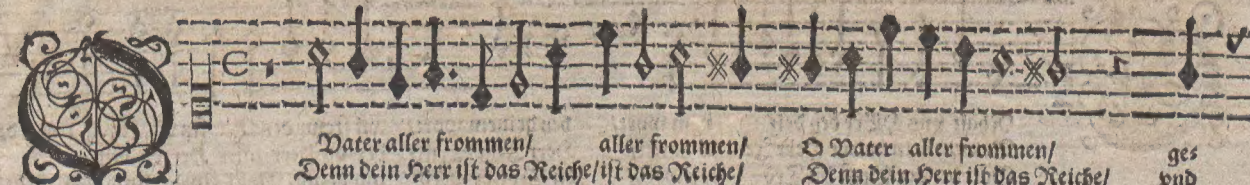 O Vater aller frommen/ aller frommen/ O Vater aller frommen/ ges
Denn dein Herr ist das Reiche/ ist das Reiche/ Denn dein Herr ist das Reiche/ vnd